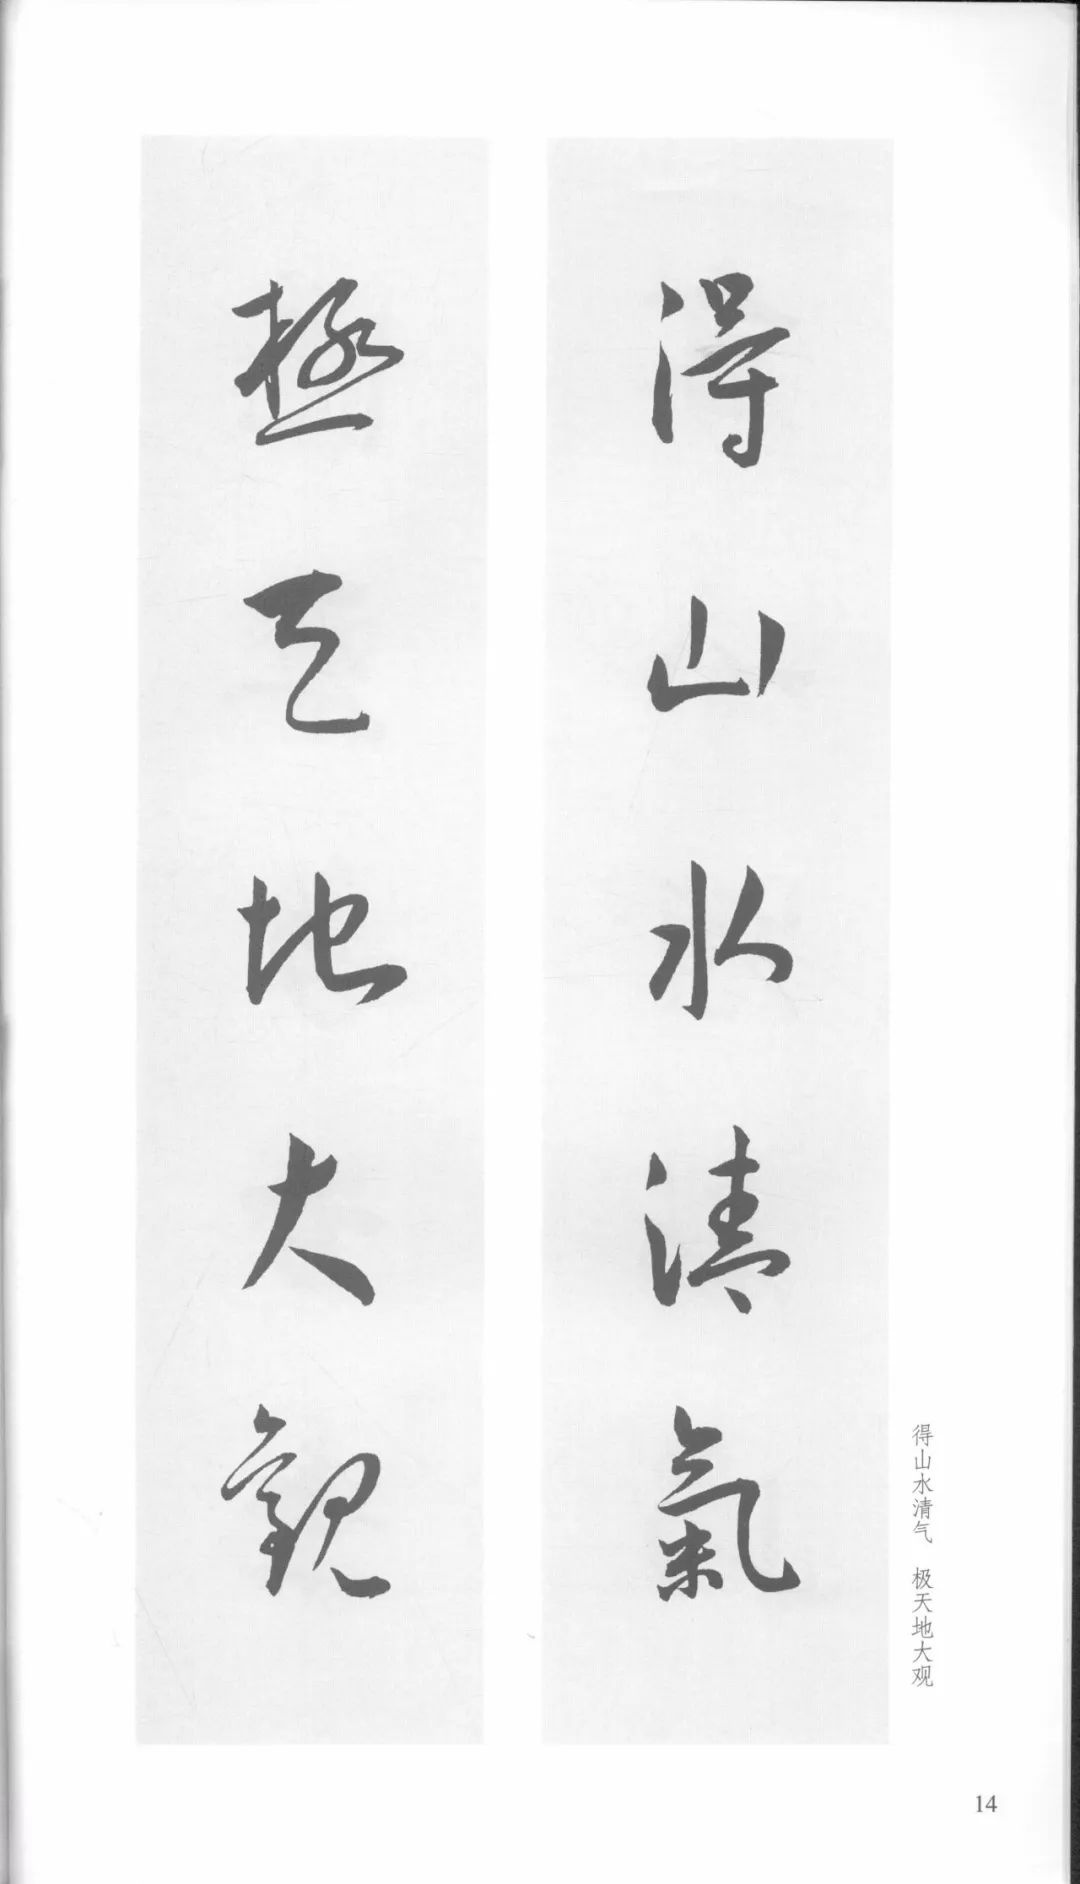 得山水清氣
極天地大觀
得山水清气 极天地大观
14